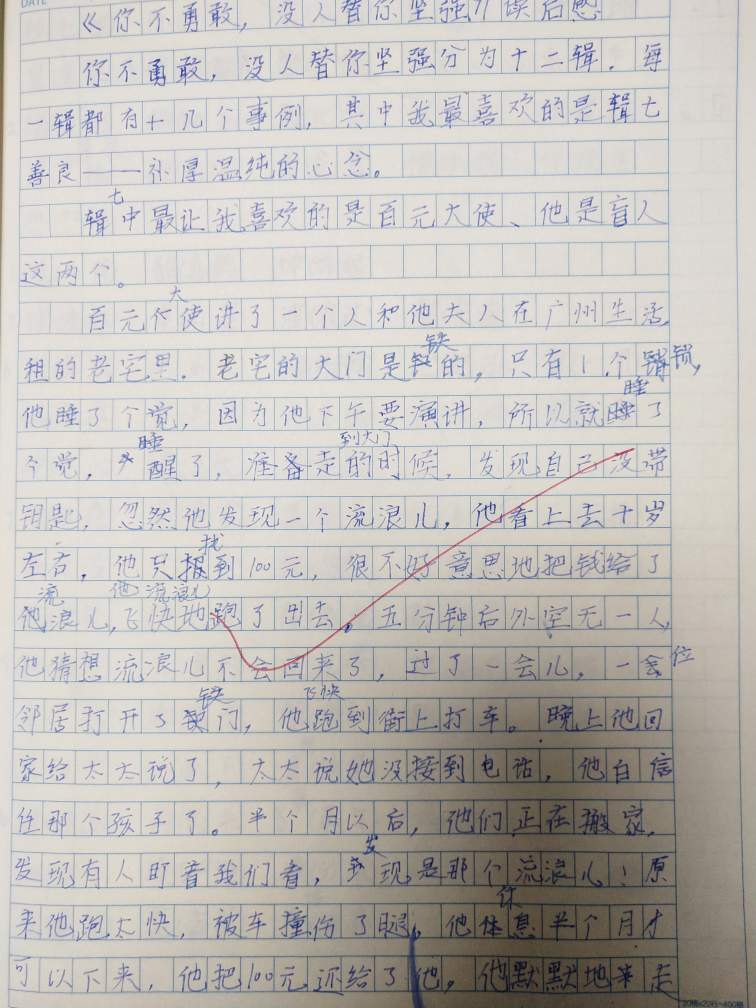 《你不勇敢，没人替你坚强》读后感
你不勇敢，没人替你坚强分为十二辑，每
一辑都有十几个事例，其中我最喜欢的是辑七
善良——补厚温纯的心念。
辑七中最让我喜欢的是百元大使、他是盲人
这两个。
百元大使讲了一个人和他夫人在广州生活，
租的老宅里．老宅的大门是铁的，只有1个锁，
他睡了个觉，因为他下午要演讲，所以就睡了
个觉，睡醒了，准备走到大门的时候，发现自己没带
钥匙，忽然他发现一个流浪儿，他看上去十岁
左右，他只找到100元，很不好意思地把钱给了
他流浪儿，他流浪儿飞快地跑了出去。五分钟后外空无一人，
他猜想流浪儿不会回来了，过了一会儿，一位
邻居打开了铁门，他飞快跑到街上打车。晚上他回
家给太太说了，太太说她没接到电话，他白信
任那个孩子了。半个月以后，他们正在搬家，
发现有人盯着我们看，发现是那个流浪儿！原
来他跑太快，被车撞伤了腿，他休息半个月才
可以下来，他把100元还给了他，他默默地走